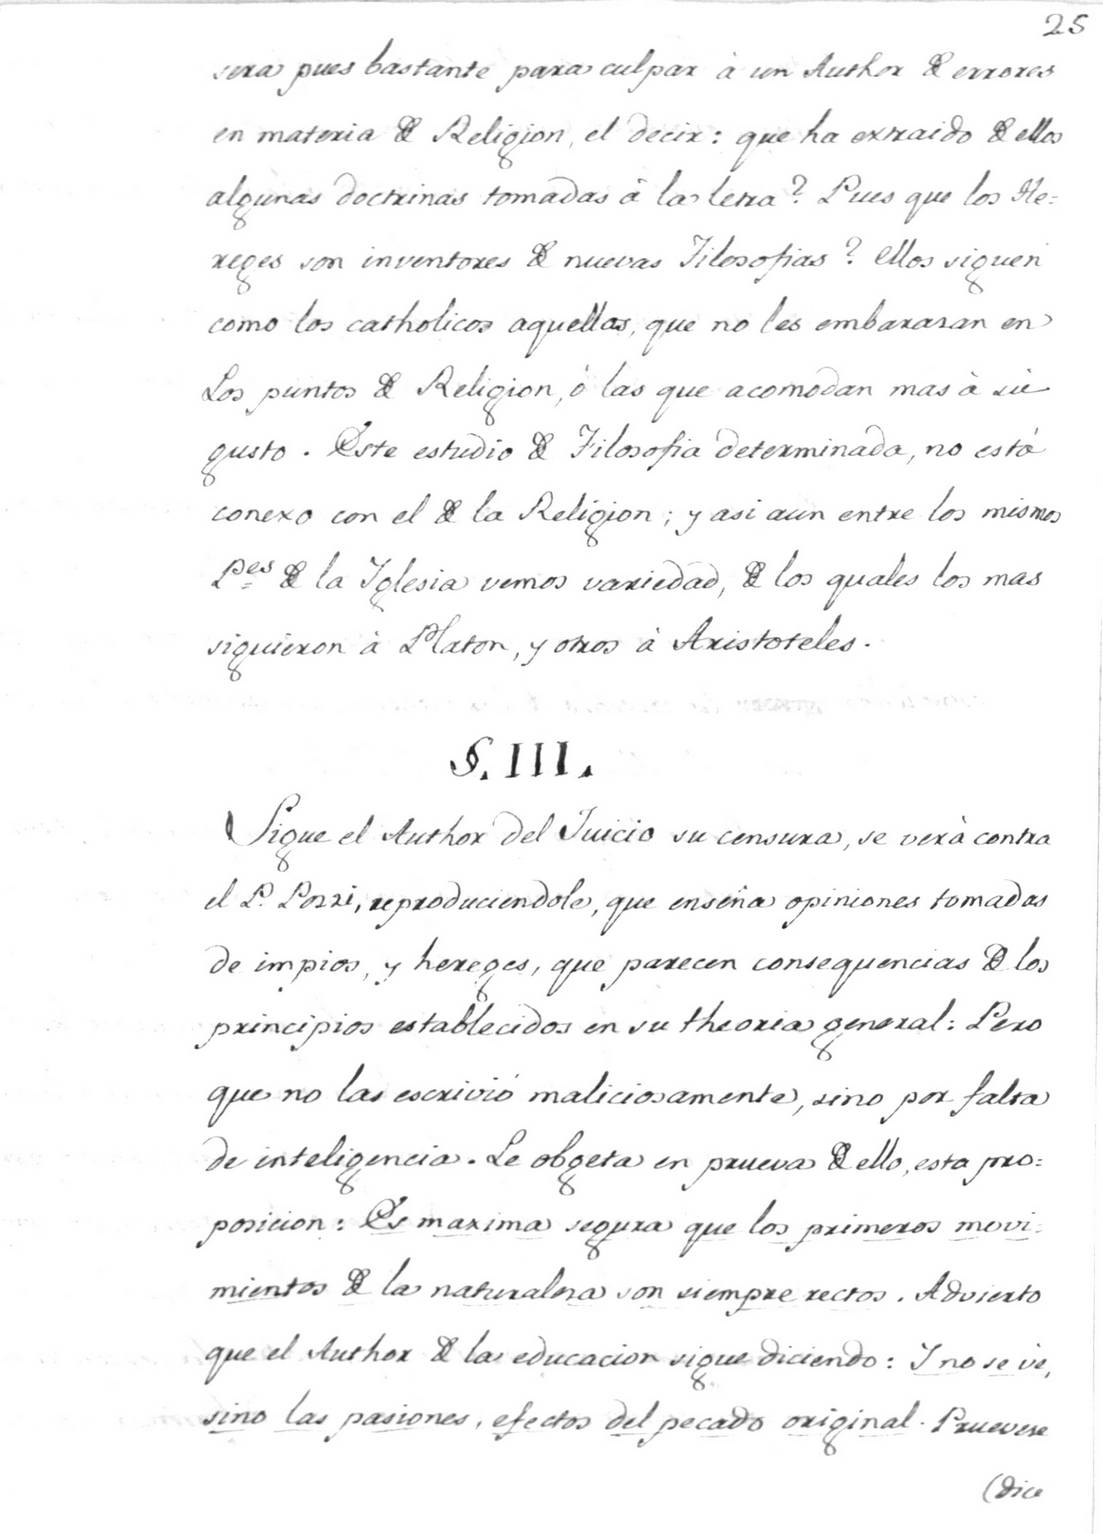 25
sera pues bastante para culpar à un Author de errores
en materia de Religion, el decir: que ha extraido de ellos
algunas doctrinas tomadas à la letra? Pues que los He=
reges son inventores de nuevas Filosofias? Ellos siguen
como los catholicos aquellas, que no les embarazan en
Los puntos de Religion, ó las que acomodan mas à su
gusto. Este estudio de Filosofia determinada, no está
conexo con el de la Religion; y asi aun entre los mismos
P.es de la Iglesia vemos variedad, de los quales los mas
siguieron à Platon, y otros à Aristoteles.
§. III.
Sigue el Author del Juicio su censura, se verà contra
el P. Pozzi, reproduciendole, que enseña opiniones tomadas
de impios, y hereges, que parecen consequencias de los
principios establecidos en su theoria general: Pero
que no las escrivió maliciosamente, sino por falta
de inteligencia. Le obgeta en prueva de ello, esta pro=
posicion: Es maxima segura que los primeros movi=
mientos de la naturaleza son siempre rectos. Advierto
que el Author de la educacion sigue diciendo: I no se ve,
sino las pasiones, efectos del pecado original. Pruevese
(dice